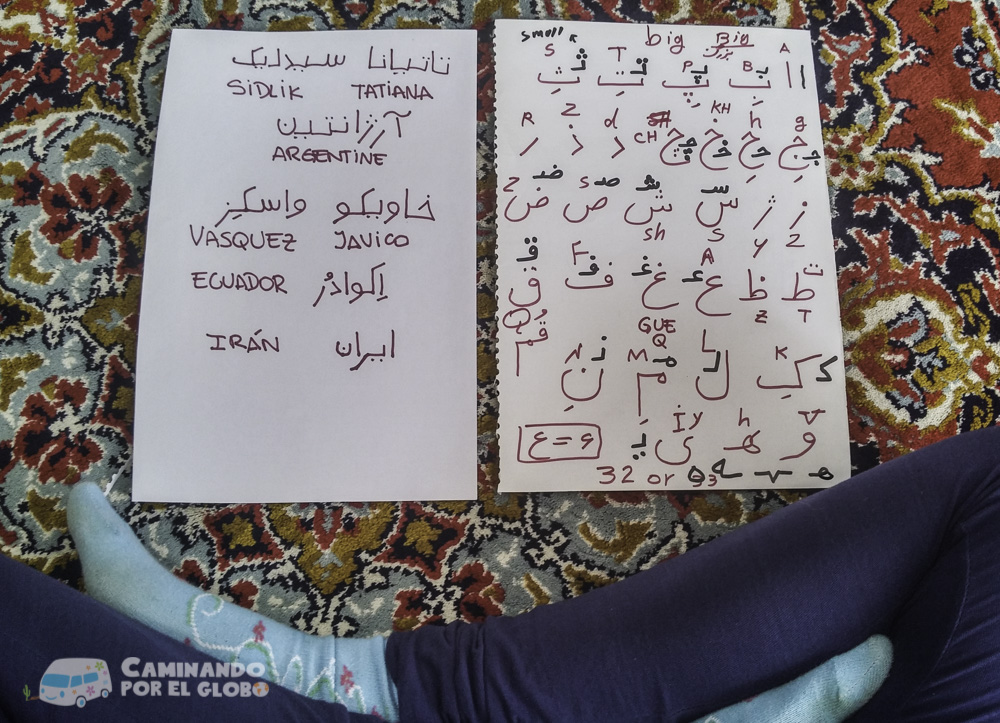 تاتیانا سیدلیک
SIDLIK TATIANA
آرژانتین
ARGENTINE
خاویکو واسکیز
VASQUEZ JAVICO
ECUADOR اِکوادُر
IRÁN ایران
small big Big
S T P B A
ث ت پ ب ا
R Z d CH KH h g
ر ذ د چ خ ح ج
Z S sh S Y Z
ض ص ش س ژ ز
F A Z T
ق ف غ ع ظ ط
Q GUE Q
قُم
N M L K
ن م ل ک
i y h V
ی ه و
ع = ۶
32 or 33
CAMINANDO
POR EL GLOBO